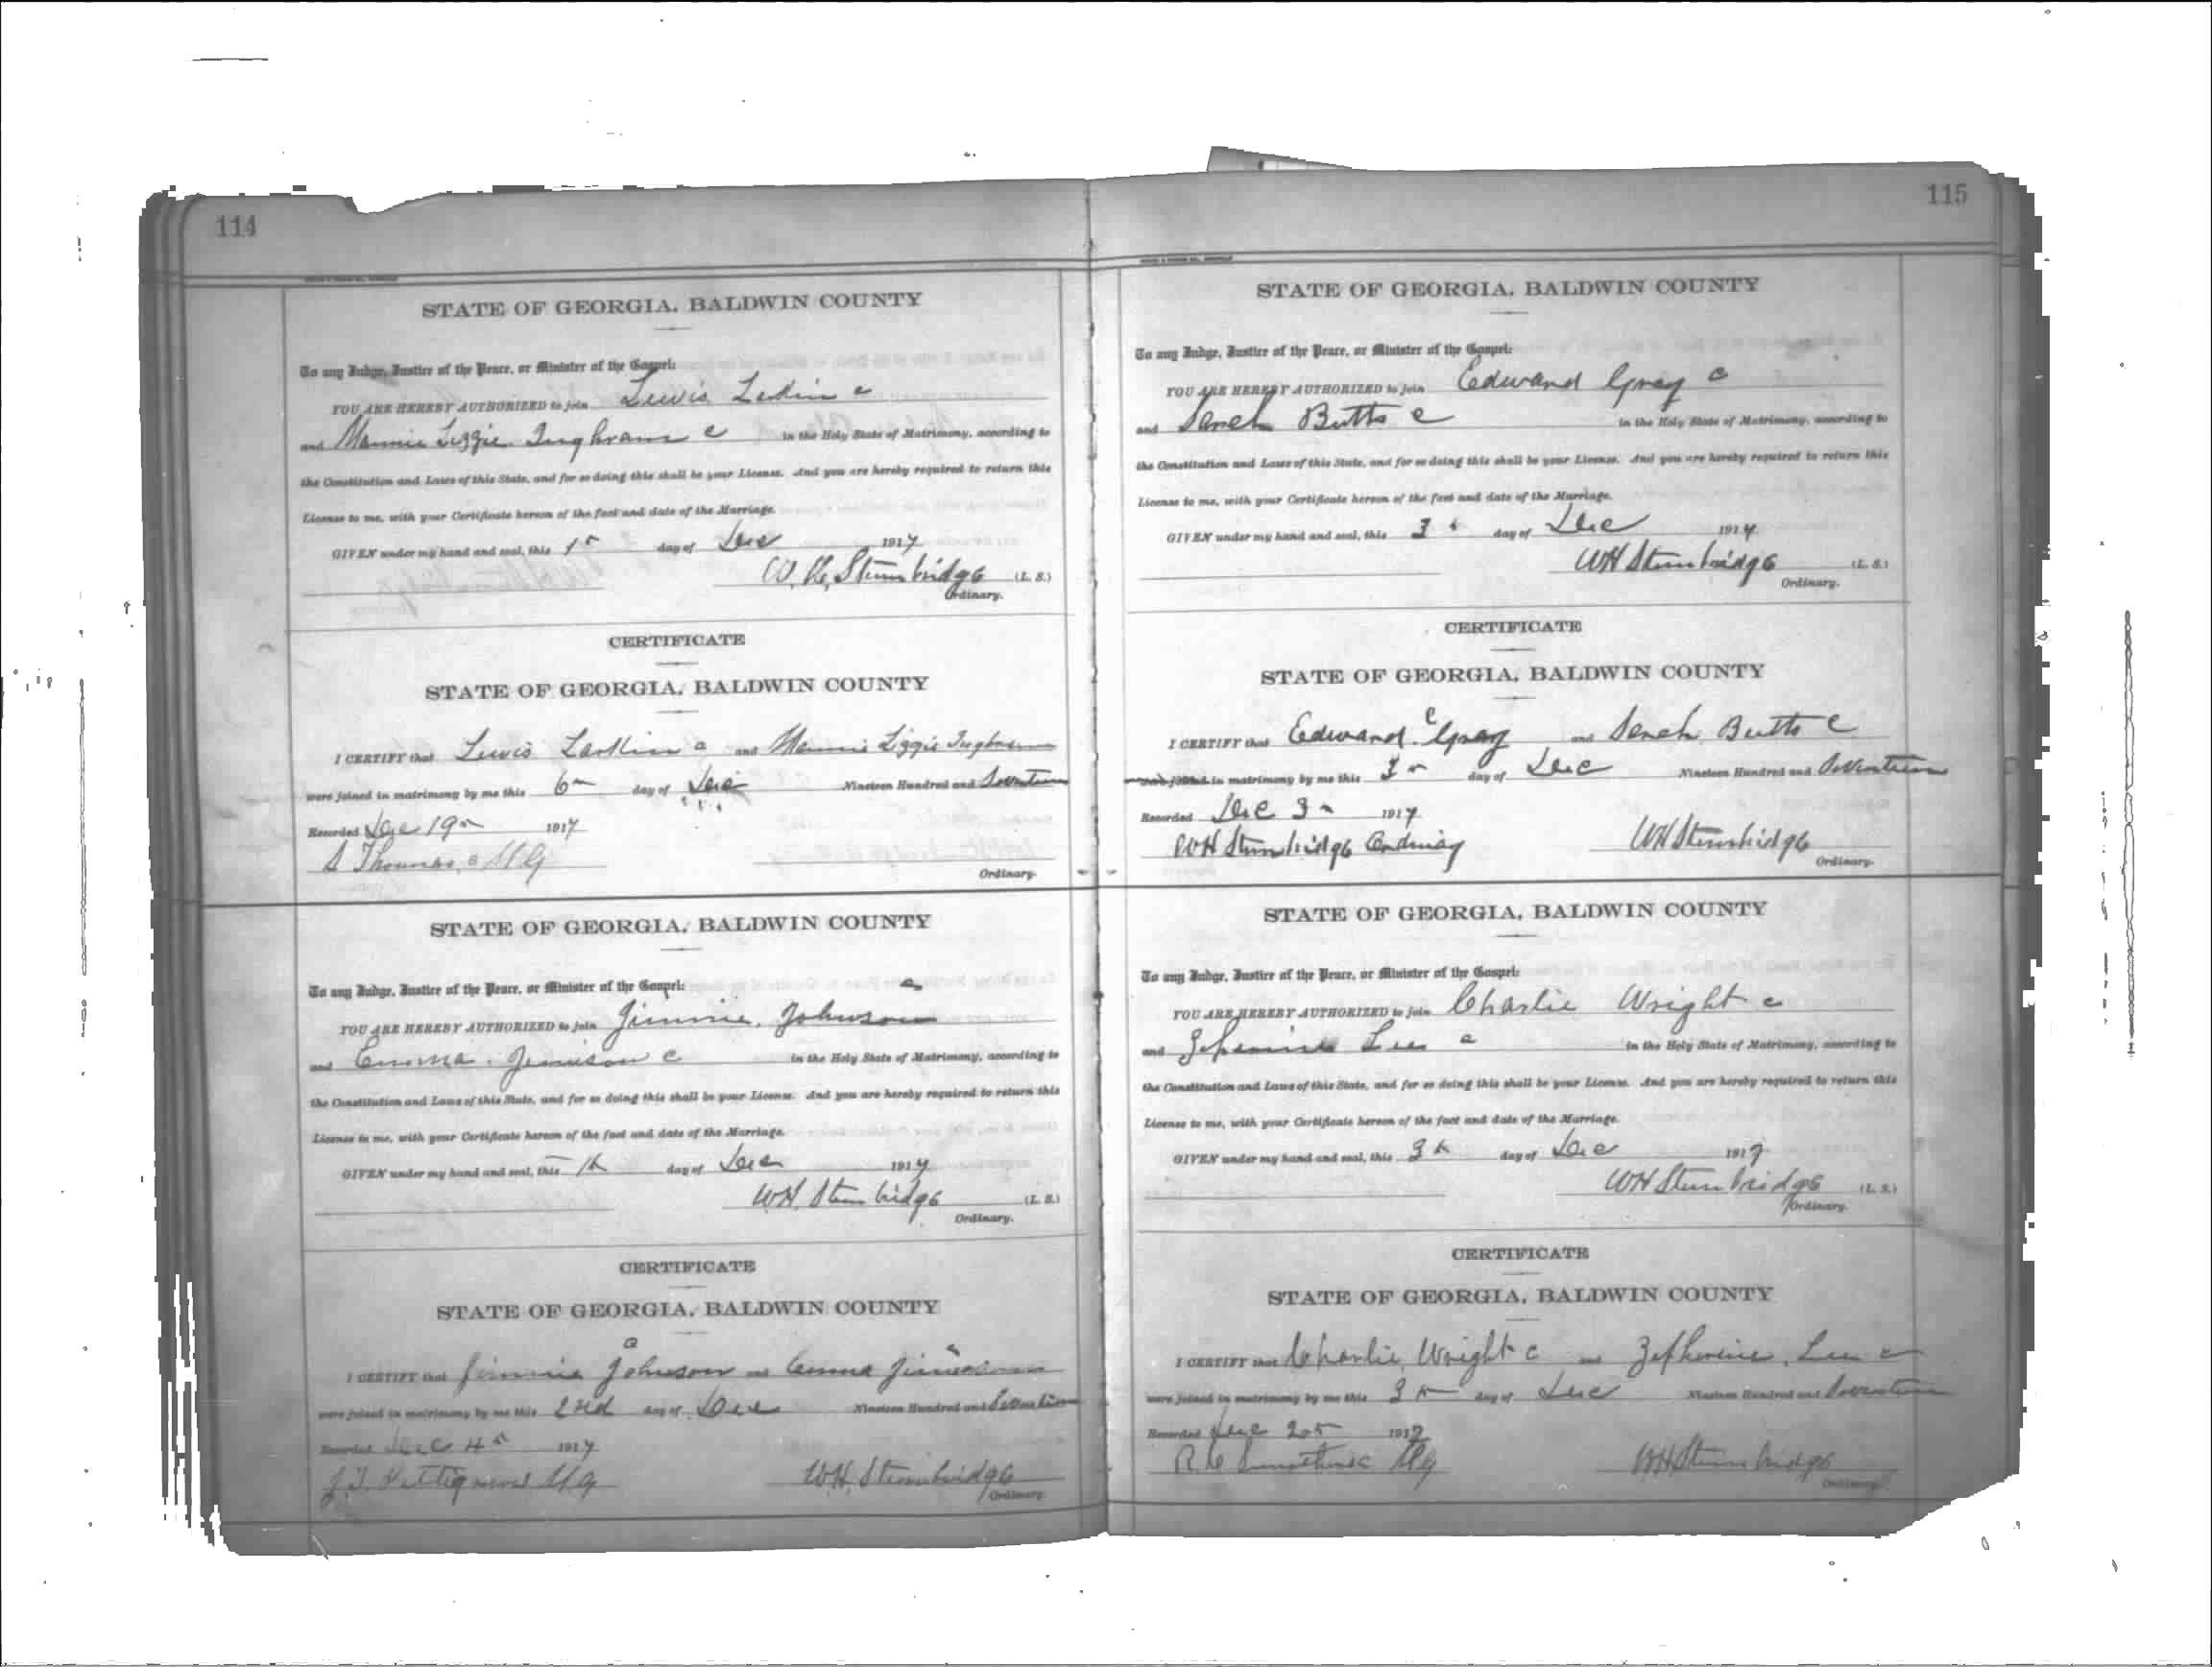 114
STATE OF GEORGIA. BALDWIN COUNTY
To any Judge, Justice of the Peace, or Minister of the Gospel:
YOU ARE HEREBY AUTHORIZED to join Lewis c
and Mannie Lizzie Inghram c in the Holy State of Matrimony, according to
the Constitution and Laws of this State, and for so doing this shall be your License. And you are hereby required to return this
License to me, with your Certificate hereon of the fact and date of the Marriage.
GIVEN under my hand and seal, this 1st day of Dec 1917
W. H. Stembridge (L. S.)
Ordinary.
CERTIFICATE
STATE OF GEORGIA. BALDWIN COUNTY
I CERTIFY that Lewis c and Mannie Lizzie Inghram
were joined in matrimony by me this 6th day of Dec Nineteen Hundred and Seventeen
Recorded Dec 19th 1917
S Thomas, c M G
Ordinary.
STATE OF GEORGIA. BALDWIN COUNTY
To any Judge, Justice of the Peace, or Minister of the Gospel:
YOU ARE HEREBY AUTHORIZED to join Jimmie Johnson c
and Emma Jimison c in the Holy State of Matrimony, according to
the Constitution and Laws of this State, and for so doing this shall be your License. And you are hereby required to return this
License to me, with your Certificate hereon of the fact and date of the Marriage.
GIVEN under my hand and seal, this day of Dec 1917
W.H. Stembridge (L. S.)
Ordinary.
CERTIFICATE
STATE OF GEORGIA. BALDWIN COUNTY
c
I CERTIFY that Jimmie Johnson and Emma Jimison
were joined in matrimony by me this 2nd day of Dec Nineteen Hundred and Seventeen
Recorded Dec 4th 1917
J. T. M G W.H. Stembridge
Ordinary.
115
STATE OF GEORGIA. BALDWIN COUNTY
To any Judge, Justice of the Peace, or Minister of the Gospel:
YOU ARE HEREBY AUTHORIZED to join Edward Gray c
and Sarah Butts c in the Holy State of Matrimony, according to
the Constitution and Laws of this State, and for so doing this shall be your License. And you are hereby required to return this
License to me, with your Certificate hereon of the fact and date of the Marriage.
GIVEN under my hand and seal, this 3 day of Dec 1917
WH Stembridge (L. S.)
Ordinary.
CERTIFICATE
STATE OF GEORGIA. BALDWIN COUNTY
I CERTIFY that Edward c Gray and Sarah Butts c
were joined in matrimony by me this 3 day of Dec Nineteen Hundred and Seventeen
Recorded Dec 3 1917
WH Stembridge Ordinary WH Stembridge
Ordinary.
STATE OF GEORGIA. BALDWIN COUNTY
To any Judge, Justice of the Peace, or Minister of the Gospel:
YOU ARE HEREBY AUTHORIZED to join Charlie Wright c
and Lee c in the Holy State of Matrimony, according to
the Constitution and Laws of this State, and for so doing this shall be your License. And you are hereby required to return this
License to me, with your Certificate hereon of the fact and date of the Marriage.
GIVEN under my hand and seal, this 3 day of Dec 1917
WH Stembridge (L. S.)
Ordinary.
CERTIFICATE
STATE OF GEORGIA. BALDWIN COUNTY
I CERTIFY that Charlie Wright c and Zepherine Lee c
were joined in matrimony by me this 3 day of Dec Nineteen Hundred and Seventeen
Recorded Dec 1917
M G WH Stembridge
Ordinary.